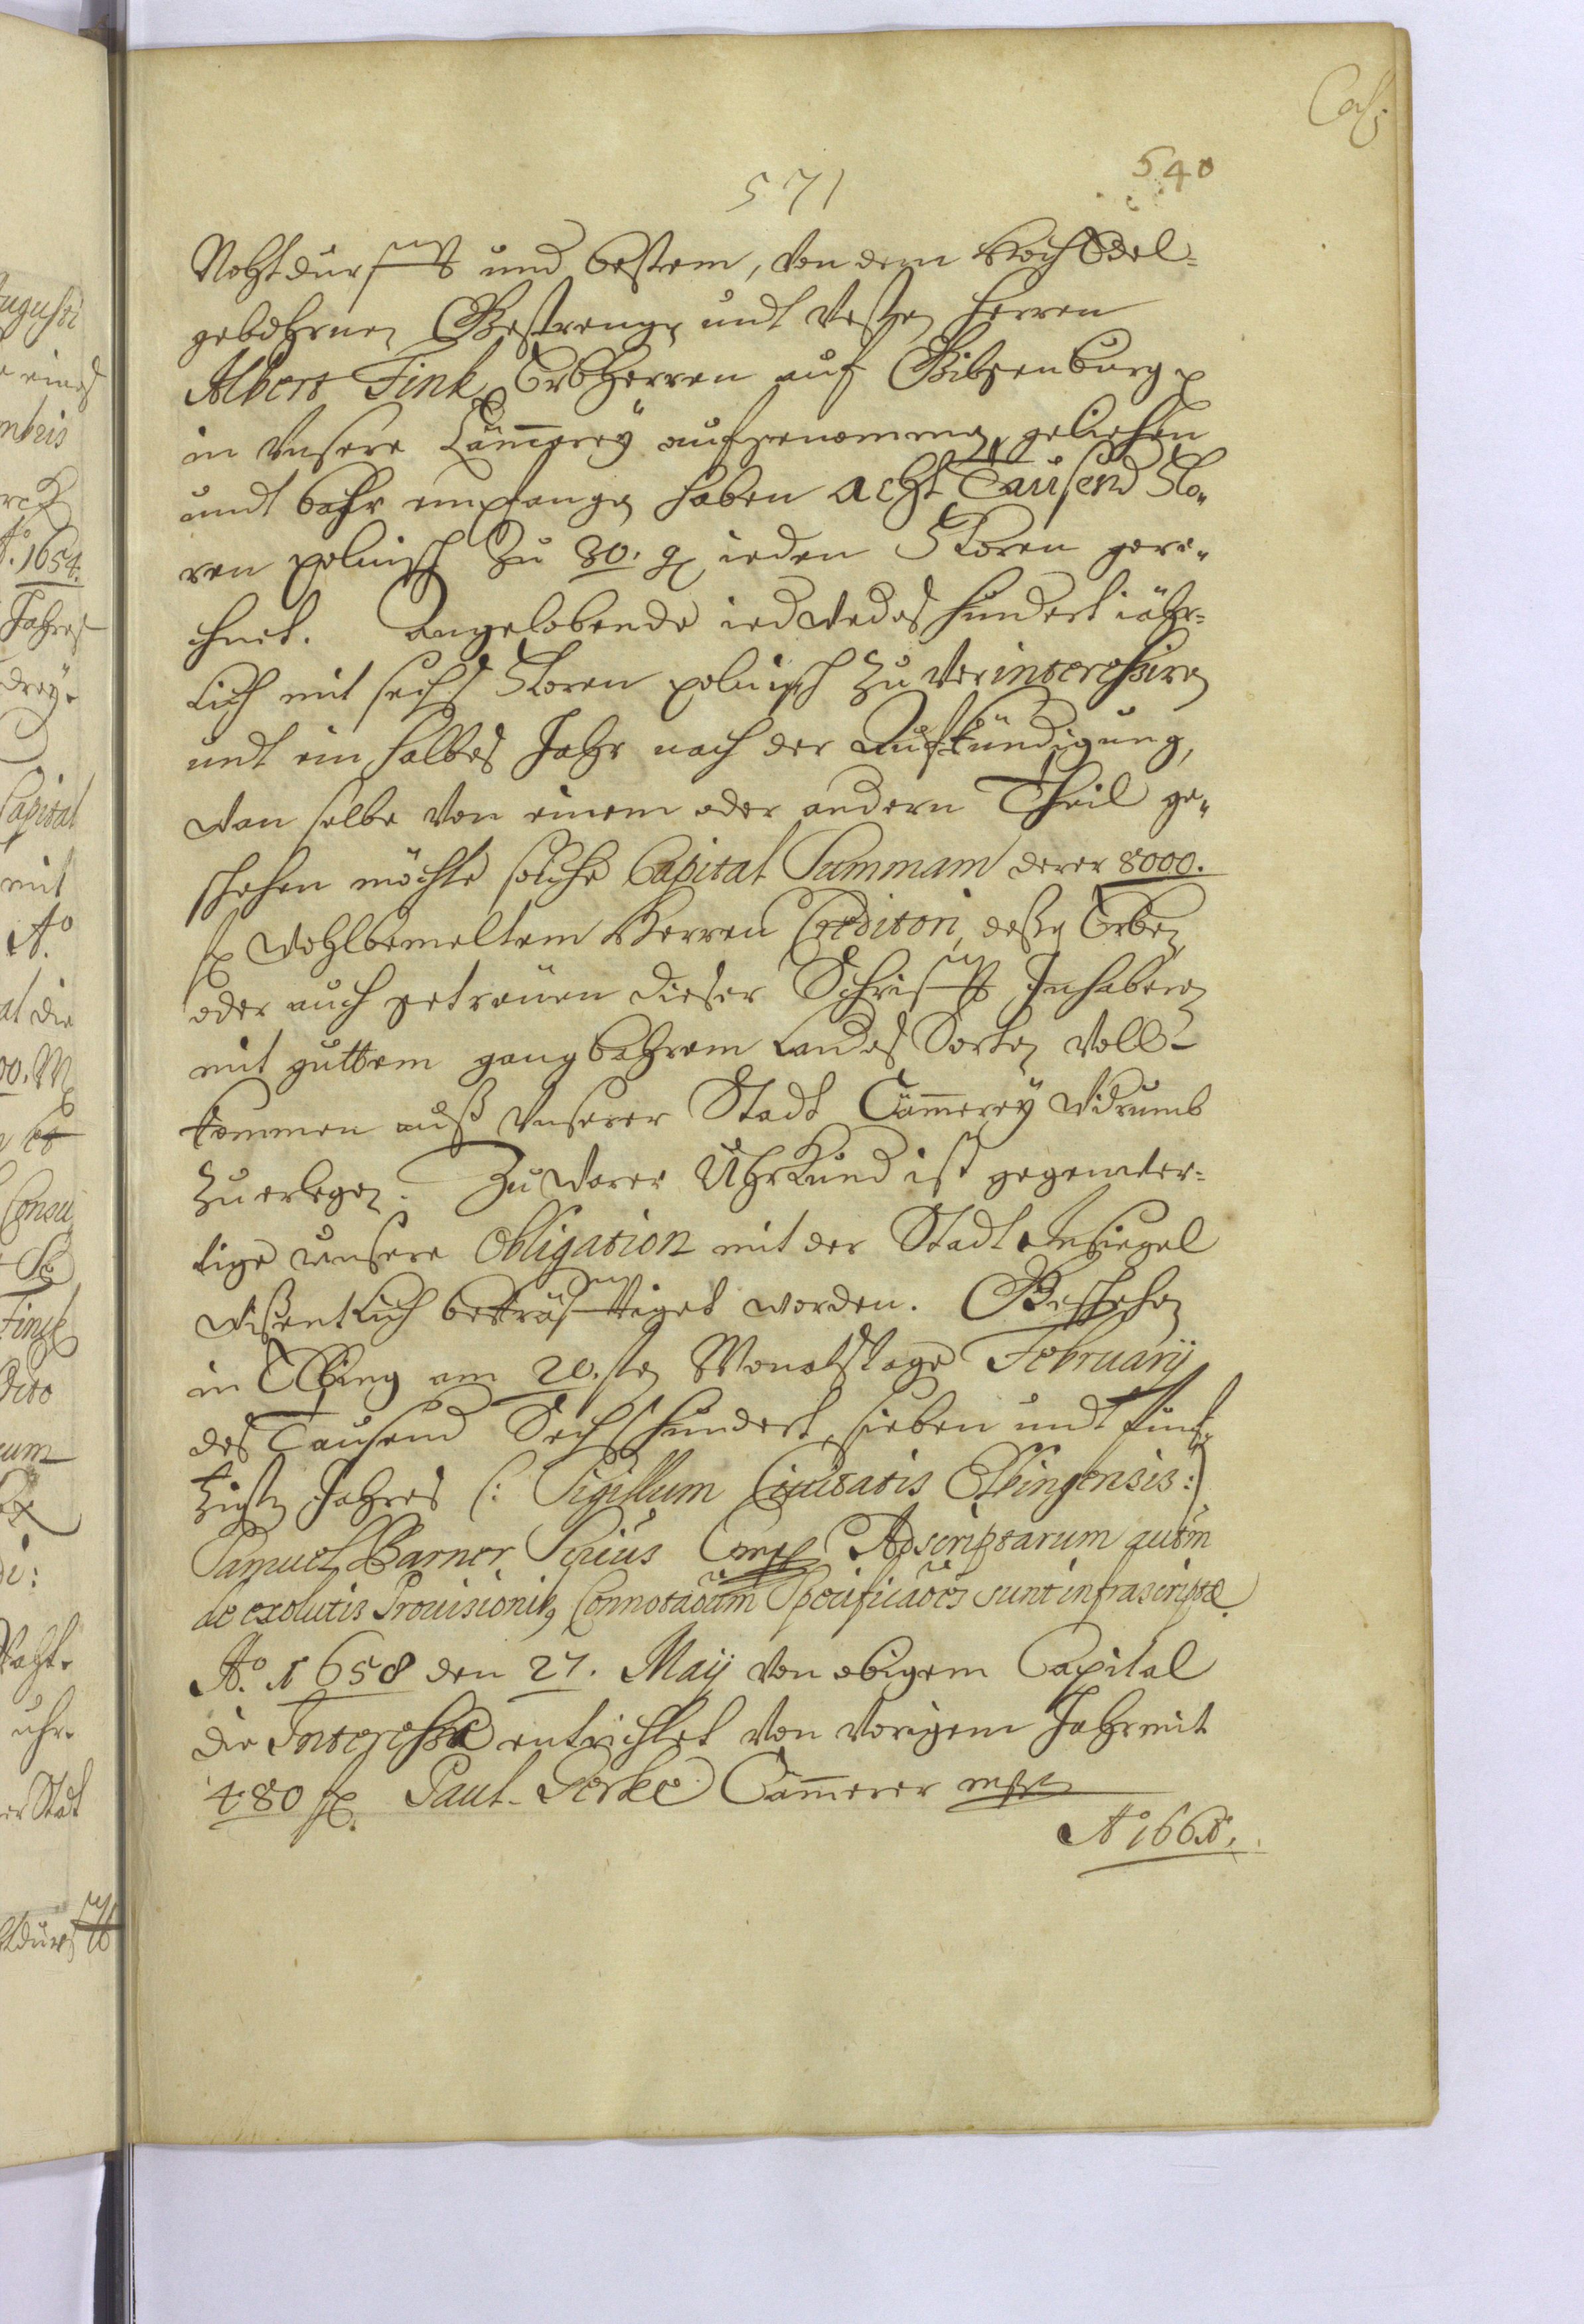 Cas:
540
571
Nohtdurfft und bestem, von dem HochEdel-
gebohrnen Gestrengen undt Vesten Herren
Albert Fink Erbherren auf
in Unsere Cämmerey aufgenommen, geliehen
undt bahr empfangen haben acht Tausend Flo-
ren polnisch zu 30. g ieden Floren gere-
chnet. Angelobende iedwedes hundert iähr-
lich mit sechs Floren polnisch zu verinteressiren
undt ein halbes Jahr nach der Aufkündigung,
wan selbe von einem oder andern Theil ge-
schehen möchte solche Capital Summam derer 8000.
fl wohlbemeltem Herren Creditori, deßen Erben
oder auch getreüen dieser Schrifft Inhaberen
mit guttem gangbahrem Landes Sorten voll-
kommen auß Unserer Stadt Cämmerey widrumb
zuerlegen. Zu wares Uhrkund ist gegenwer-
tige unsere Obligation mit der Stadt Insiegel
wißentlich bekräfftiget worden. Geschehen
in Elbing am 20.sten Monatstage February
des Tausend Sechshundert, sieben undt funf-
zigsten Jahres (: Sigillum Civitatis Elbingensis:)
Samuel Barner Secrius Adscriptarum autm
de exolutis Provisionib9 Connotaõum Specificaões sunt infrascriptæ.
Ao. 1658 den 27. Maij von obigem Capital
die Interesse entrichtet von vorigem Jahr mit
480 fl. Paul Cämmerer mpp